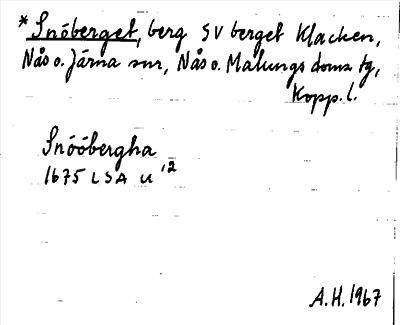 * Snöberget, berg SV berget Klacken,
Nås o. Järna snr, Nås o. Malungs doms. tg,
Kopp. l.
Snóóbergha
1675 LSA U 12
A.H. 1967